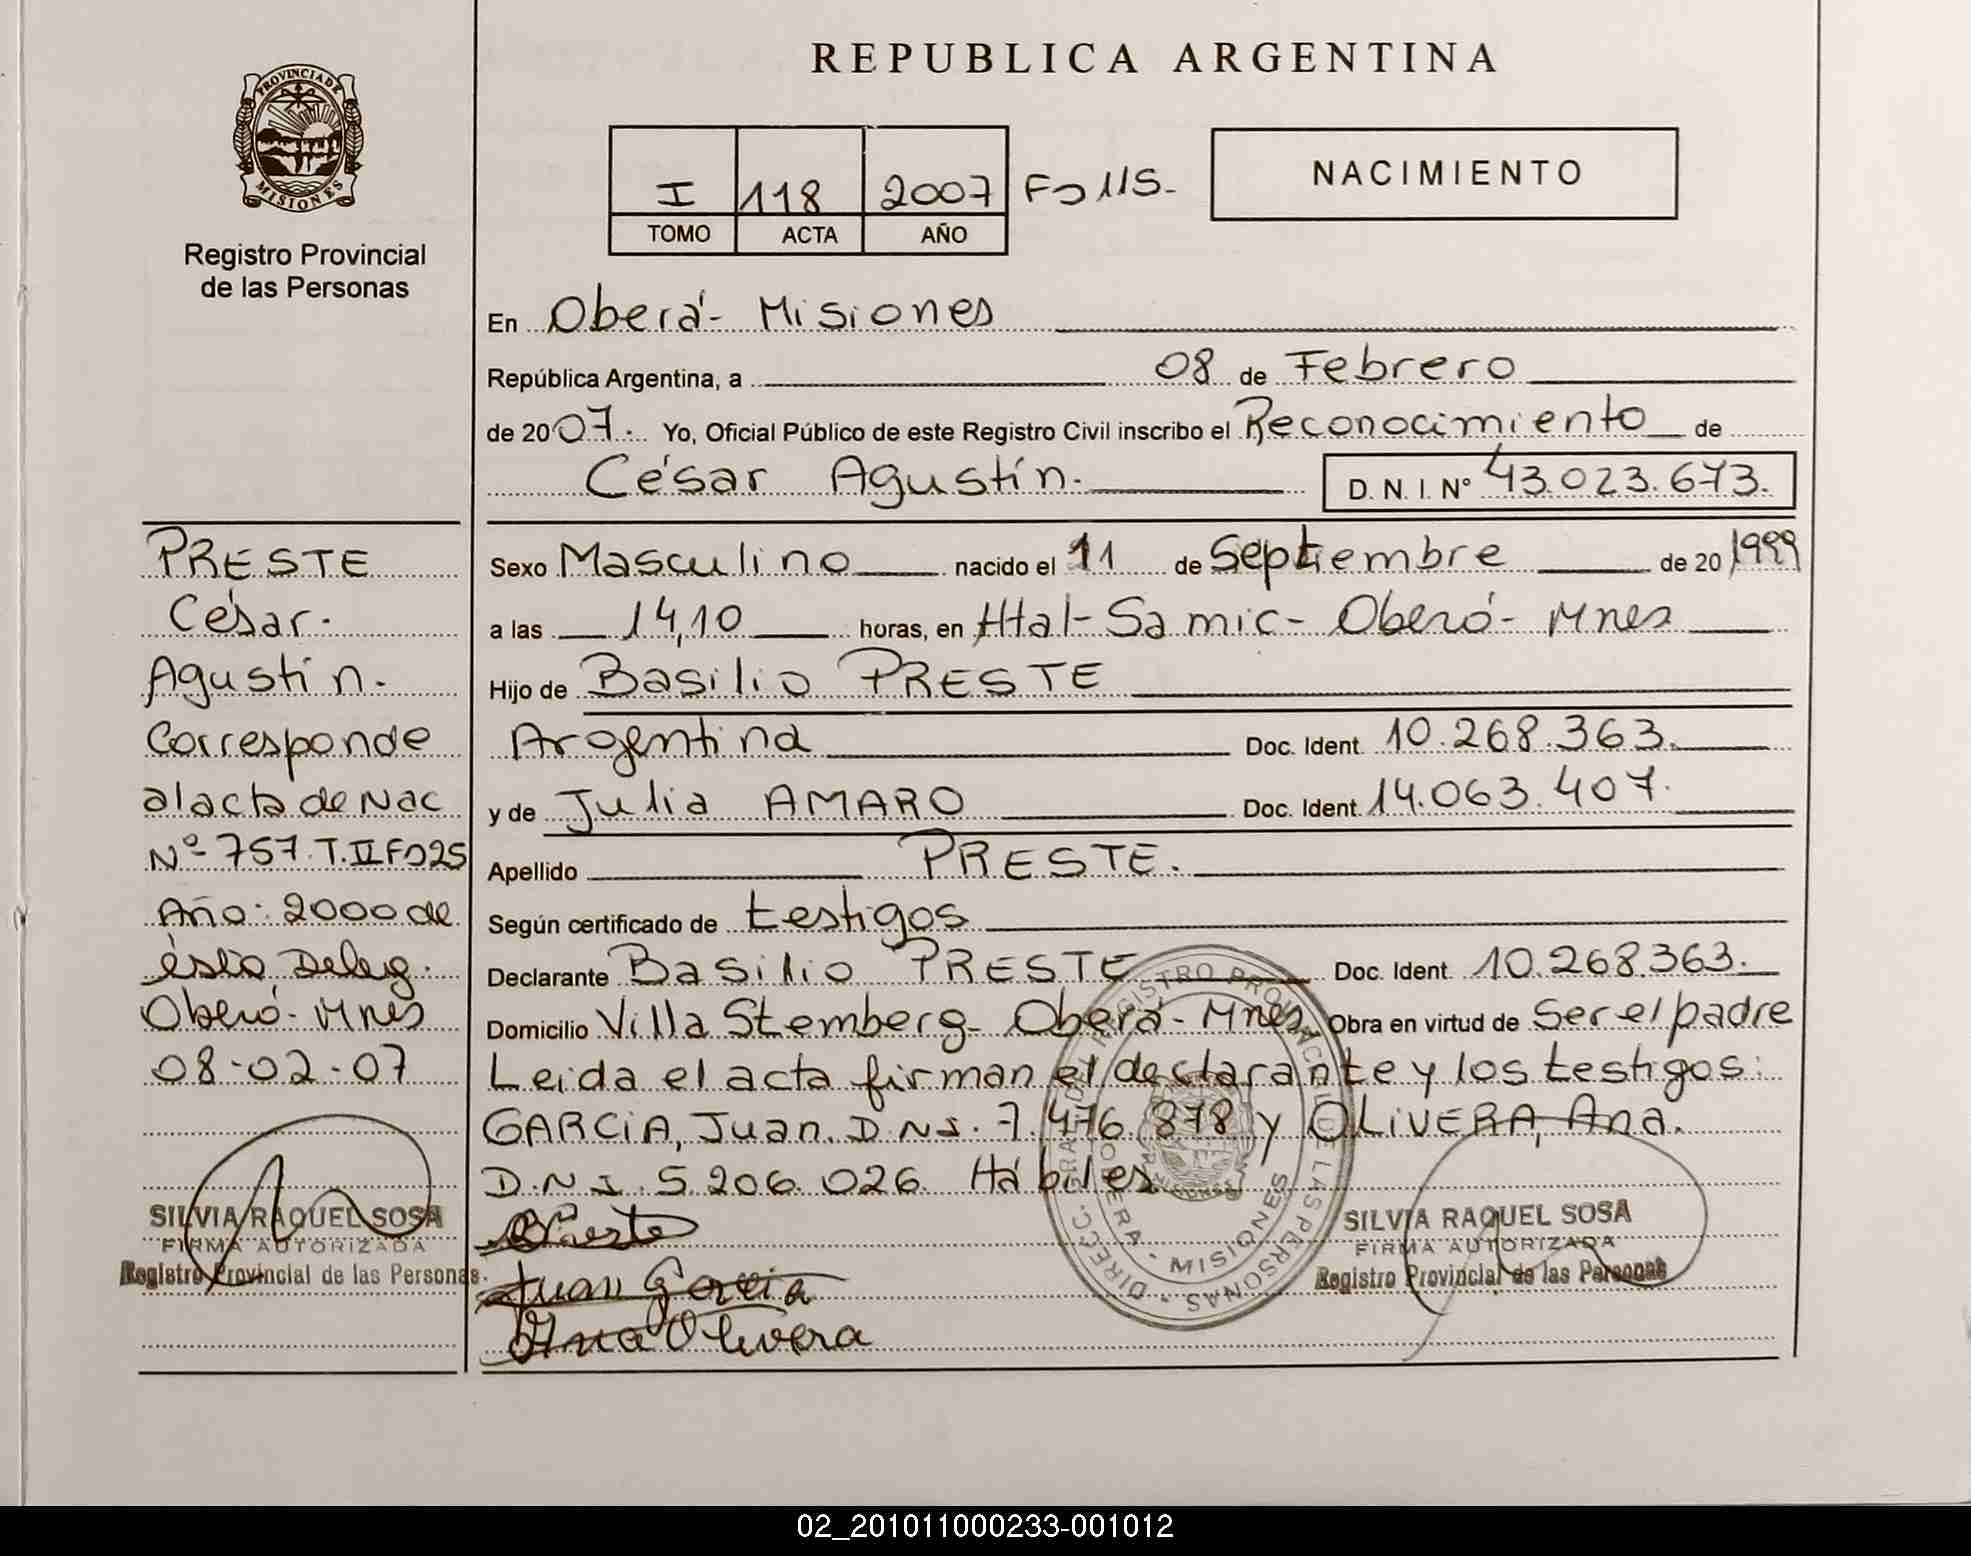 REPUBLICA ARGENTINA
PROVINCIA DE
MISIONES
Registro Provincial
de las Personas
I 118 2007 Fo 115.
TOMO ACTA AÑO
NACIMIENTO
En Oberá- Misiones
República Argentina, a 08 de Febrero
de 2007. Yo, Oficial Público de este Registro Civil inscribo el Reconocimiento de
César Agustín. D. N. I. Nº 43.023.673.
Sexo Masculino nacido el 11 de Septiembre de 20 1999
a las 14,10 horas, en Htal-Samic- Oberá- Mnes
Hijo de Basilio PRESTE
Argentina Doc. Ident. 10.268.363.
y de Julia AMARO Doc. Ident. 14.063.407.
Apellido PRESTE.
Según certificado de testigos
Declarante Basilio PRESTE Doc. Ident. 10.268.363.
Domicilio Villa Stemberg- Oberá- Mnes, Obra en virtud de Ser el padre
Leida el acta firman el declarante y los testigos:
GARCiA, Juan. D.N.I. 7.476.878 y OLiVERA, Ana.
D.N.I. 5.206.026 Hábiles
BPreste
Juan Garcia
Ana Olivera
PRESTE
César.
Agustín.
Corresponde
al acta de Nac
Nº 757.T.II Fo 25
Año: 2000 de
ésta Deleg.
Oberá- Mnes
08-02-07
SILVIA RAQUEL SOSA
FIRMA AUTORIZADA
Registro Provincial de las Personas.
DIRECC. GRAL. DEL REGISTRO PROVINCIAL DE LAS PERSONAS
OBERA - MISIONES
SILVIA RAQUEL SOSA
FIRMA AUTORIZADA
Registro Provincial de las Personas
02_201011000233-001012